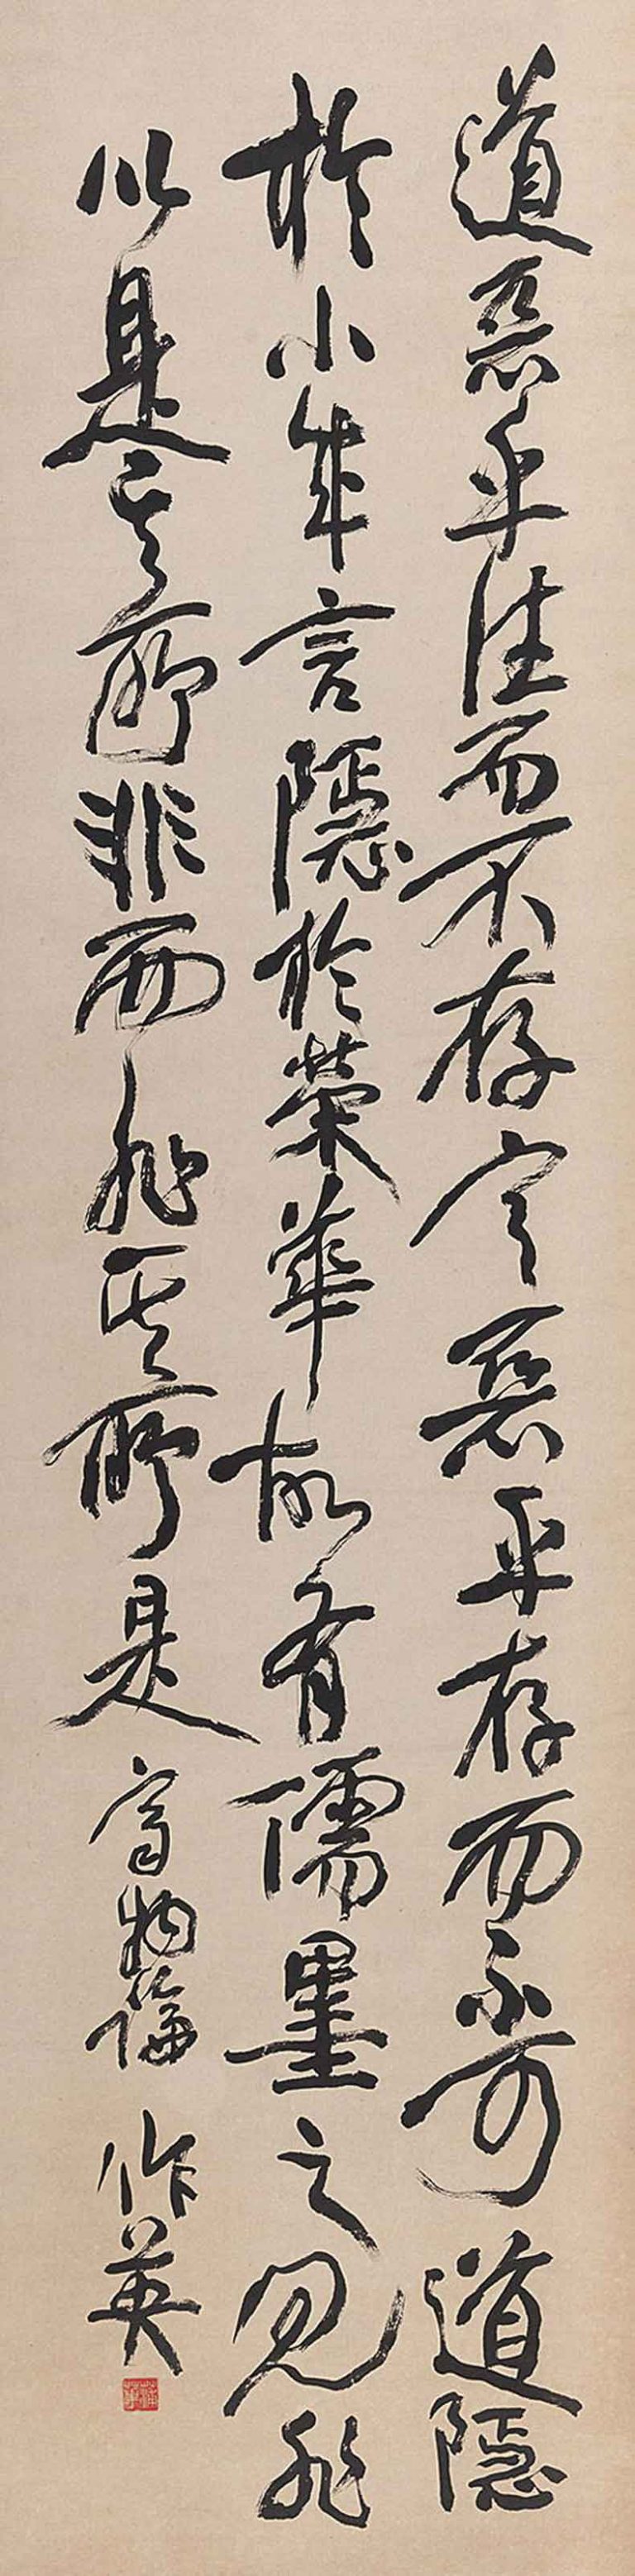 道惡乎往而不存言惡乎存而不可道隱
於小成言隱於榮華故有儒墨之是非
以是其所非而非其所是 齊物論 作英